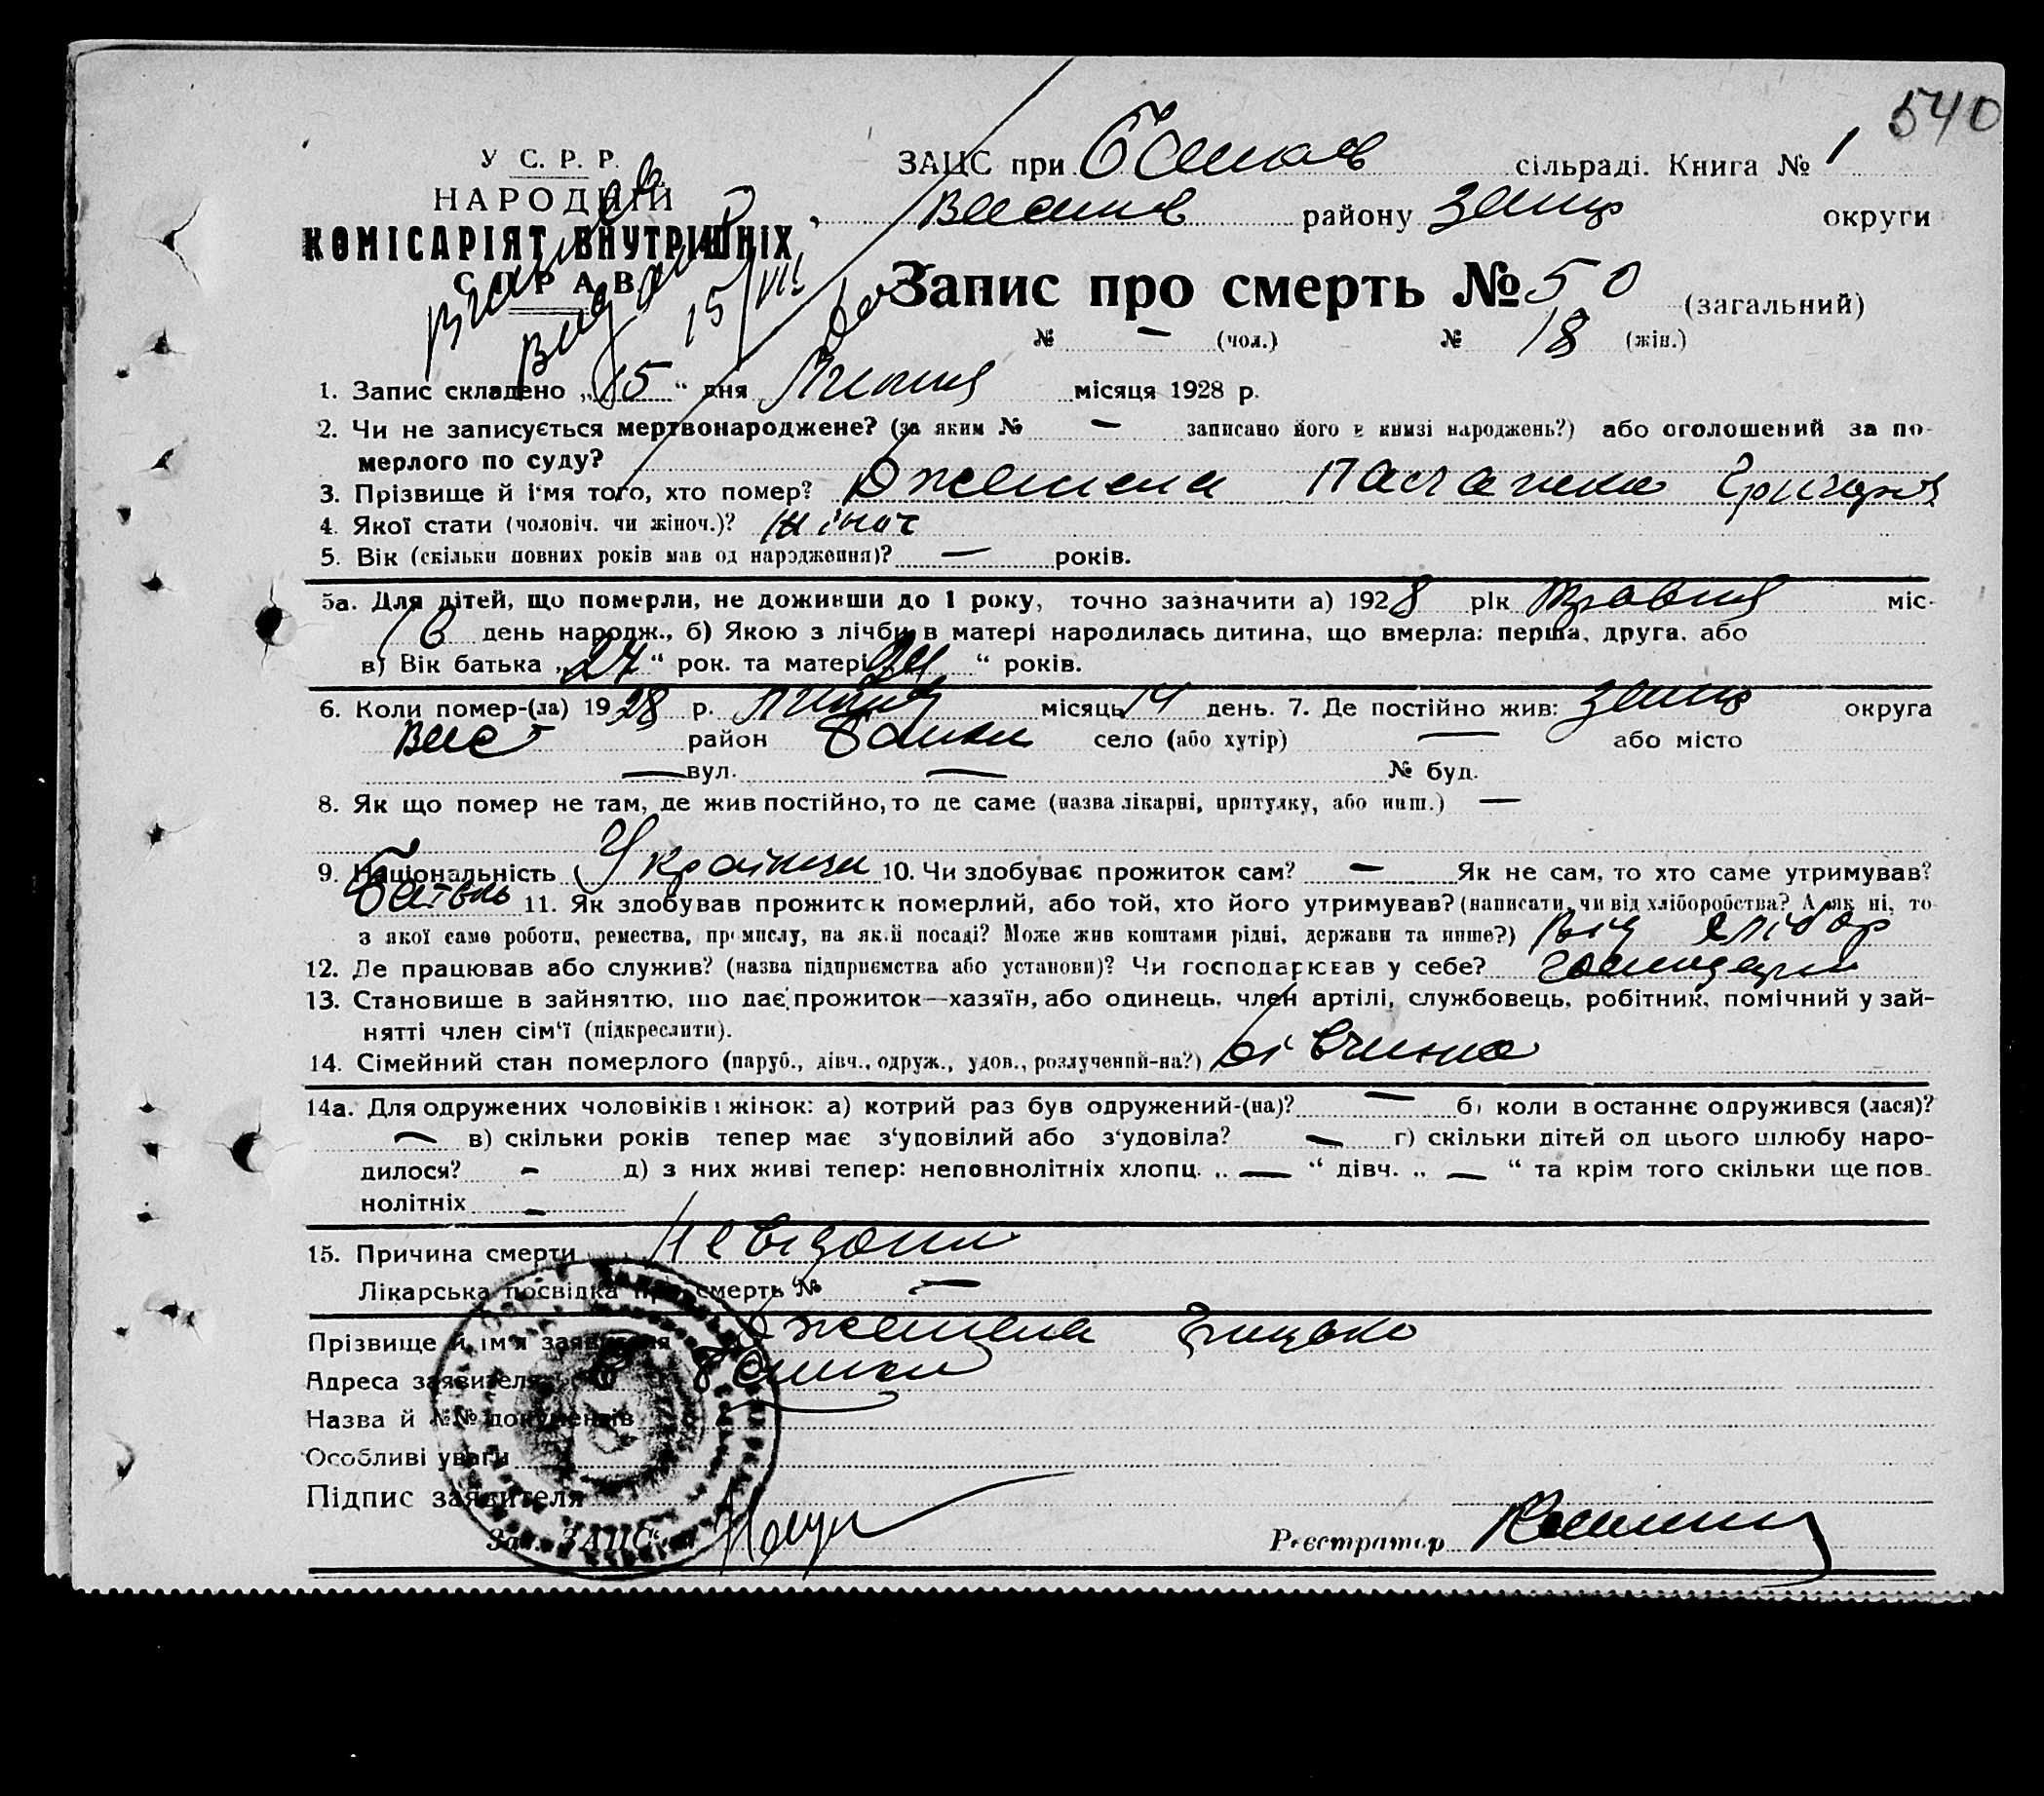 540
У С. Р. Р.
НАРОДНІЙ
КОМІСАРІЯТ ВНУТРІШНІХ
СПРАВ
ЗАЦС при сільраді. Книга № 1
району Запор округи
15/VII
Запис про смерть № 50 (загальний)
№ — (чол.) № 18 (жін.)
1. Запис складено „15“ дня Липня місяця 1928 р.
2. Чи не записується мертвонароджене? (за яким № — записано його в книзі народжень?) або оголошений за по-
мерлого по суду?
3. Прізвище й ім'я того, хто помер? Джемела Григор
4. Якої стати (чоловіч. чи жіноч.)? жіноч
5. Вік (скільки повних років мав од народження)? — років.
5а. Для дітей, що померли, не доживши до 1 року, точно зазначити а) 1928 рік Травня міс.
день народж., б) Якою з лічби в матері народилась дитина, що вмерла: перша, друга, або
в) Вік батька „27“ рок. та матері „24“ років.
6. Коли помер-(ла) 1928 р. Липня місяць 14 день. 7. Де постійно жив: Запор округа
Вас район Балки село (або хутір) — або місто
— вул. — № буд.
8. Як що помер не там, де жив постійно, то де саме (назва лікарні, притулку, або инш.) —
9. Національність Українка 10. Чи здобуває прожиток сам? — Як не сам, то хто саме утримував?
Батько 11. Як здобував прожиток померлий, або той, хто його утримував? (написати, чи від хліборобства? А як ні, то
з якої саме роботи, ремества, промислу, на якій посаді? Може жив коштами рідні, держави та инше?) Від хлібор
12. Де працював або служив? (назва підприємства або установи)? Чи господарював у себе?
13. Становище в зайняттю, що дає прожиток—хазяїн, або одинець, член артілі, службовець, робітник, помічний у зай-
нятті член сім'ї (підкреслити).
14. Сімейний стан померлого (паруб., дівч., одруж., удов., розлучений-на?) дівчина
14а. Для одружених чоловіків і жінок: а) котрий раз був одружений-(на)? — б) коли в останнє одружився (лася)?
— в) скільки років тепер має з'уповілий або з'удовіла? — г) скільки дітей од цього шлюбу наро-
дилося? — д) з них живі тепер: неповнолітніх хлопц. „—“ дівч. „—“ та крім того скільки ще пов-
нолітніх —
15. Причина смерти Невідома
Лікарська посвідка про смерть № —
Прізвище й ім'я заявителя Джемела Грицько
Адреса заявителя Балки
Назва й №№ документів
Особливі уваги
Підпис заявителя
Зав. ЗАЦС'ом Реєстратор